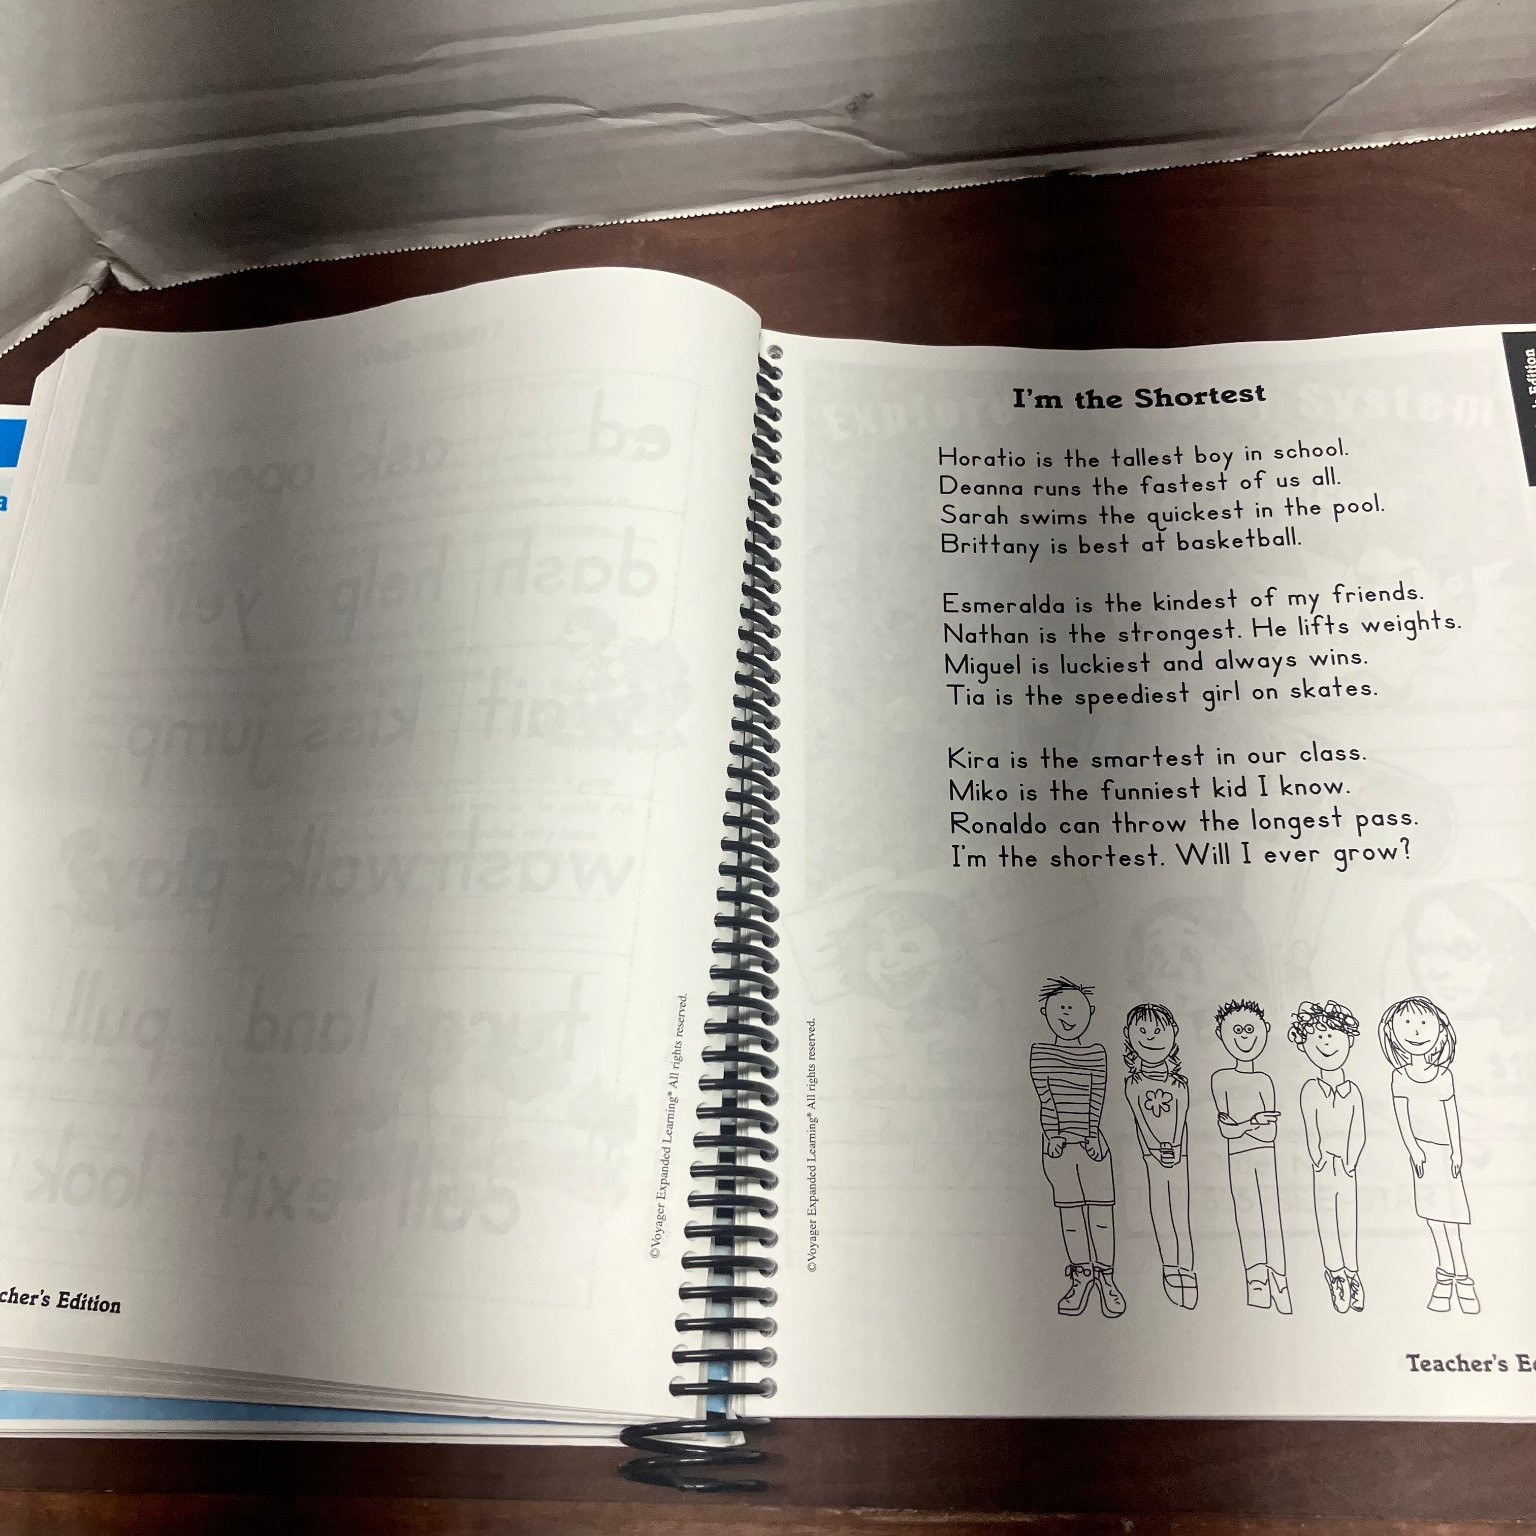 I'm the Shortest
Horatio is the tallest boy in school.
Deanna runs the fastest of us all.
Sarah swims the quickest in the pool.
Brittany is best at basketball.
Esmeralda is the kindest of my friends.
Nathan is the strongest. He lifts weights.
Miguel is luckiest and always wins.
Tia is the speediest girl on skates.
Kira is the smartest in our class.
Miko is the funniest kid I know.
Ronaldo can throw the longest pass.
I'm the shortest. Will I ever grow?
©Voyager Expanded Learning® All rights reserved.
©Voyager Expanded Learning® All rights reserved.
cher's Edition
Teacher's Ed
Edition
a